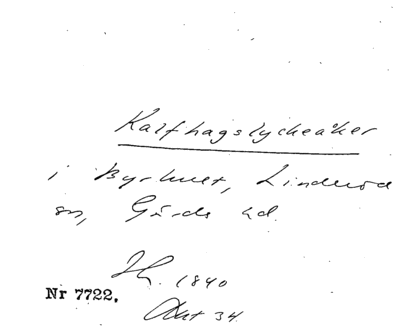 Kalfhagslyckeåker
i Byrhult, Linderöd
sn, Gärds hd.
Jh. 1840
Nr 7722.
Akt 34